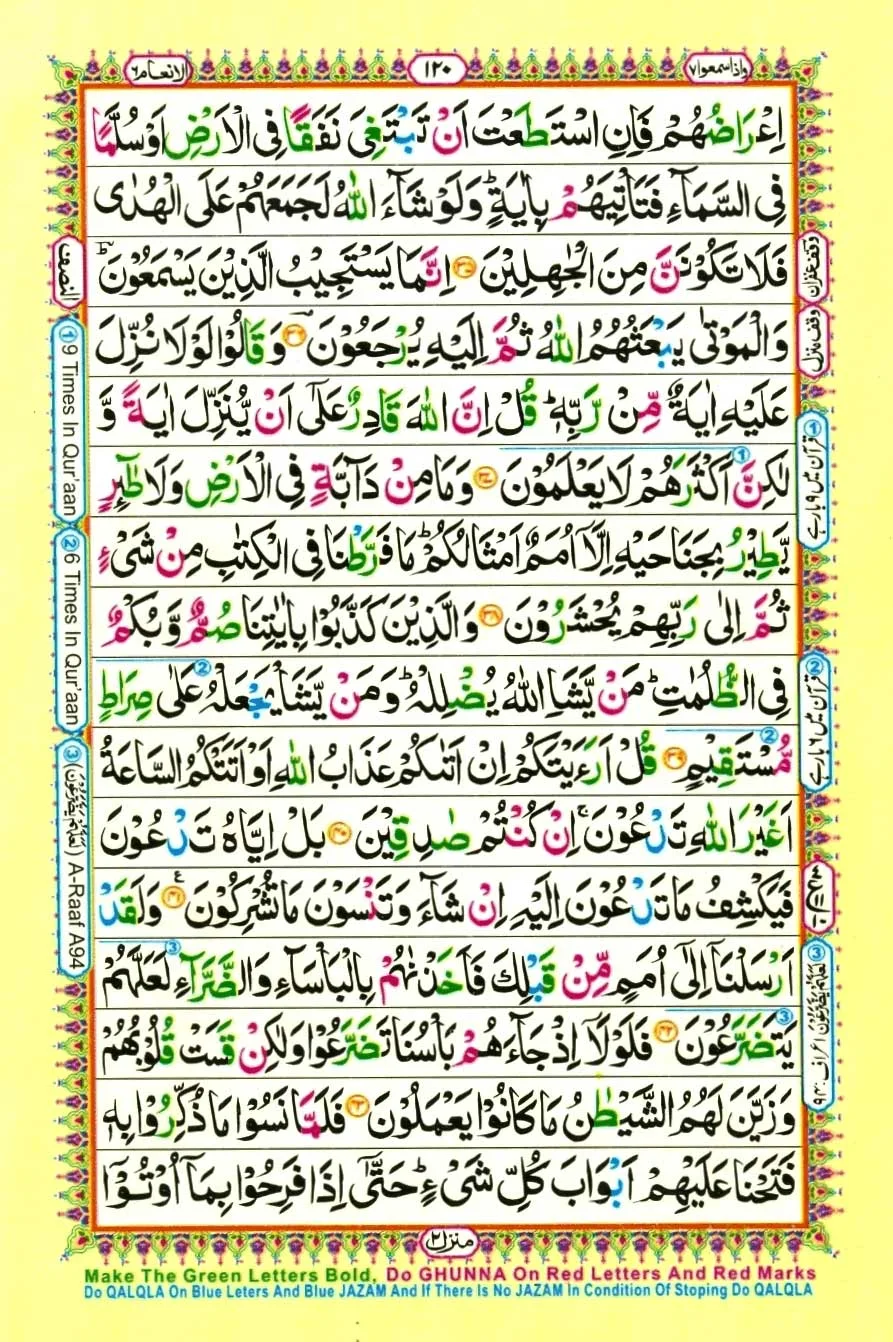 واذاسمعوا٧
١٢٠
الانعام٦
اِعْرَاضُهُمْ فَاِنِ اسْتَطَعْتَ اَنْ تَبْتَغِیَ نَفَقًا فِی الْاَرْضِ اَوْ سُلَّمًا
فِی السَّمَآءِ فَتَاْتِیَهُمْ بِاٰیَةٍؕ وَلَوْ شَآءَ اللّٰهُ لَجَمَعَهُمْ عَلَی الْهُدٰی
فَلَا تَكُوْنَنَّ مِنَ الْجٰهِلِیْنَ ﴿۳۵﴾ اِنَّمَا یَسْتَجِیْبُ الَّذِیْنَ یَسْمَعُوْنَؕ
وَالْمَوْتٰی یَبْعَثُهُمُ اللّٰهُ ثُمَّ اِلَیْهِ یُرْجَعُوْنَ ﴿۳۶﴾ وَقَالُوْا لَوْلَا نُزِّلَ
عَلَیْهِ اٰیَةٌ مِّنْ رَّبِّهٖؕ قُلْ اِنَّ اللّٰهَ قَادِرٌ عَلٰۤی اَنْ یُّنَزِّلَ اٰیَةً وَّ
لٰكِنَّ اَكْثَرَهُمْ لَا یَعْلَمُوْنَ ﴿۳۷﴾ وَمَا مِنْ دَآبَّةٍ فِی الْاَرْضِ وَلَا طٰٓئِرٍ
یَّطِیْرُ بِجَنَاحَیْهِ اِلَّاۤ اُمَمٌ اَمْثَالُكُمْؕ مَا فَرَّطْنَا فِی الْكِتٰبِ مِنْ شَیْءٍ
ثُمَّ اِلٰی رَبِّهِمْ یُحْشَرُوْنَ ﴿۳۸﴾ وَالَّذِیْنَ كَذَّبُوْا بِاٰیٰتِنَا صُمٌّ وَّبُكْمٌ
فِی الظُّلُمٰتِؕ مَنْ یَّشَاِ اللّٰهُ یُضْلِلْهُؕ وَمَنْ یَّشَاْ یَجْعَلْهُ عَلٰی صِرَاطٍ
مُّسْتَقِیْمٍ ﴿۳۹﴾ قُلْ اَرَءَیْتَكُمْ اِنْ اَتٰىكُمْ عَذَابُ اللّٰهِ اَوْ اَتَتْكُمُ السَّاعَةُ
اَغَیْرَ اللّٰهِ تَدْعُوْنَۚ اِنْ كُنْتُمْ صٰدِقِیْنَ ﴿۴۰﴾ بَلْ اِیَّاهُ تَدْعُوْنَ
فَیَكْشِفُ مَا تَدْعُوْنَ اِلَیْهِ اِنْ شَآءَ وَتَنْسَوْنَ مَا تُشْرِكُوْنَ ﴿۴۱﴾ وَلَقَدْ
اَرْسَلْنَاۤ اِلٰۤی اُمَمٍ مِّنْ قَبْلِكَ فَاَخَذْنٰهُمْ بِالْبَاْسَآءِ وَالضَّرَّآءِ لَعَلَّهُمْ
یَتَضَرَّعُوْنَ ﴿۴۲﴾ فَلَوْلَاۤ اِذْ جَآءَهُمْ بَاْسُنَا تَضَرَّعُوْا وَلٰكِنْ قَسَتْ قُلُوْبُهُمْ
وَزَیَّنَ لَهُمُ الشَّیْطٰنُ مَا كَانُوْا یَعْمَلُوْنَ ﴿۴۳﴾ فَلَمَّا نَسُوْا مَا ذُكِّرُوْا بِهٖ
فَتَحْنَا عَلَیْهِمْ اَبْوَابَ كُلِّ شَیْءٍؕ حَتّٰۤی اِذَا فَرِحُوْا بِمَاۤ اُوْتُوْۤا
وقف غفران
وقف منزل
① قرآن میں ٩ بار ہے
② قرآن میں ٦ بار ہے
③ لَعَلَّهُمْ يَضَّرَّعُوْنَ اعراف:٩٤
النصف
① 9 Times In Qur'aan
② 6 Times In Qur'aan
③ (لَعَلَّهُمْ يَضَّرَّعُوْنَ) A-Raaf A94
منزل٢
Make The Green Letters Bold, Do GHUNNA On Red Letters And Red Marks
Do QALQLA On Blue Leters And Blue JAZAM And If There Is No JAZAM In Condition Of Stoping Do QALQLA